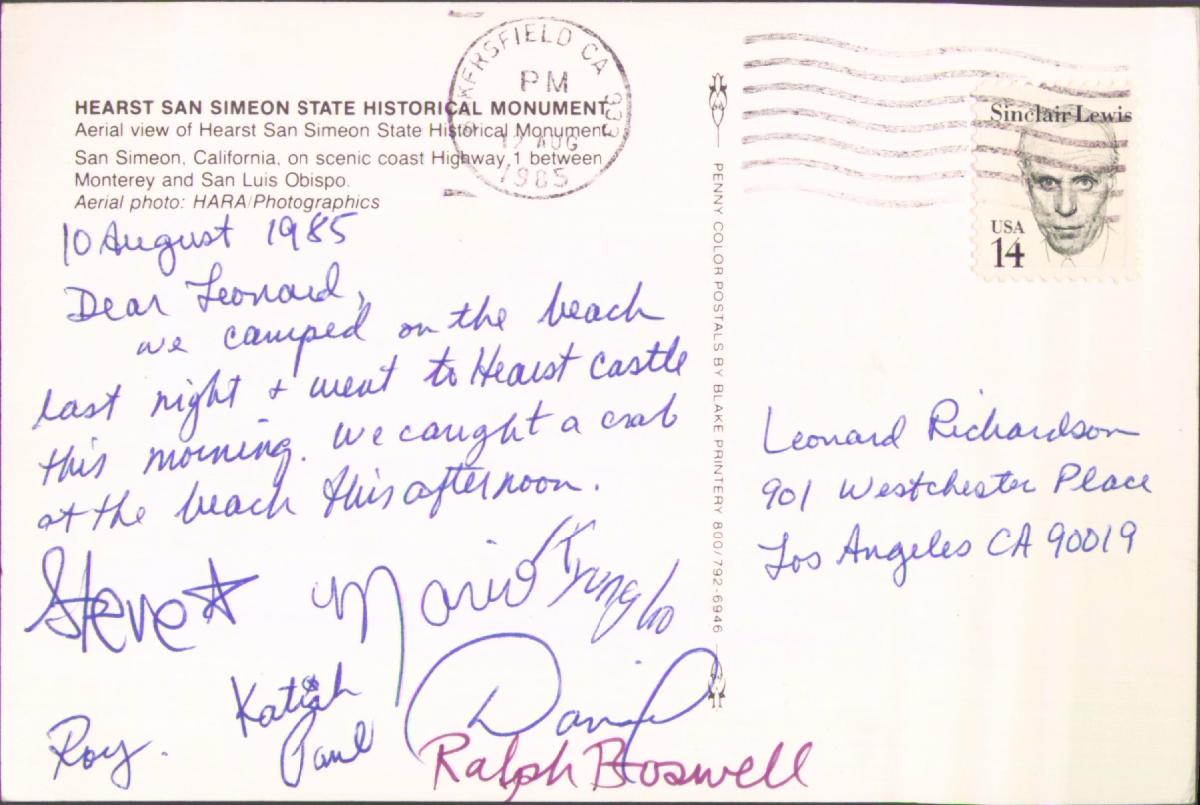 HEARST SAN SIMEON STATE HISTORICAL MONUMENT
Aerial view of Hearst San Simeon State Historical Monument
San Simeon, California, on scenic coast Highway 1 between
Monterey and San Luis Obispo.
Aerial photo: HARA/Photographics
10 August 1985
Dear Leonard,
we camped on the beach
last night + went to Hearst Castle
this morning. We caught a crab
at the beach this afternoon.
Steve
Mario
Katiah
Daniel
Roy.
Paul
Ralph Boswell
KERSFIELD CA 933
PM
AUG
1985
PENNY COLOR POSTALS BY BLAKE PRINTERY 800/792-6946
Sinclair Lewis
USA
14
Leonard Richardson
901 Westchester Place
Los Angeles CA 90019